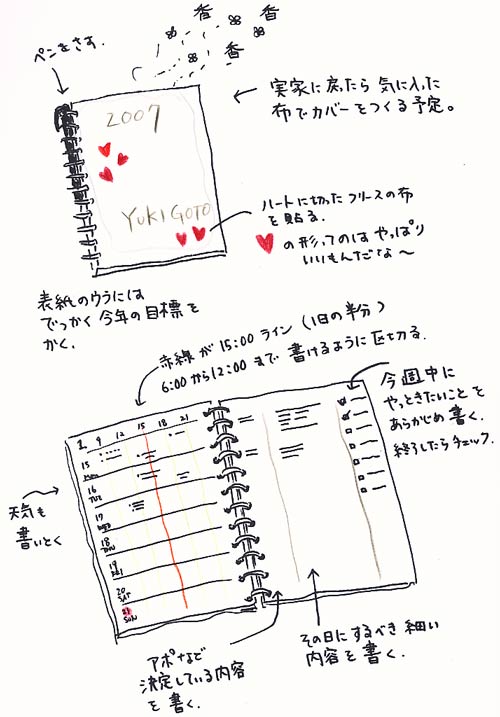 香 香
香
ペンをさす。
実家に戻ったら 気に入った
布でカバーをつくる予定。
2007
YUKI GOTO
ハートに切ったフリースの布
を貼る。
の形ってのは やっぱり
いいもんだな〜
表紙のウラには
でっかく 今年の目標を
かく。
赤線が 15:00 ライン (1日の半分)
6:00 から 12:00 まで 書けるように 区切る.
今週中に
やっときたいことを
あらかじめ 書く.
終了したら チェック.
1. 9 12 15 18 21
15
MON
16
TUE
17
WED
18
THU
19
FRI
20
SAT
21
SUN
天気も
書いとく
アポなど
決定している内容
を書く.
その日にするべき 細い
内容を書く.